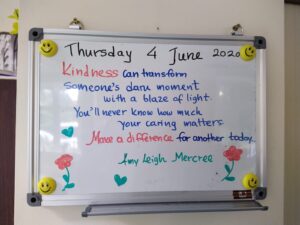 Thursday 4 June 2020
Kindness can transform
someone's dark moment
with a blaze of light.
You'll never know how much
your caring matters.
Make a difference for another today.
Amy Leigh Mercree